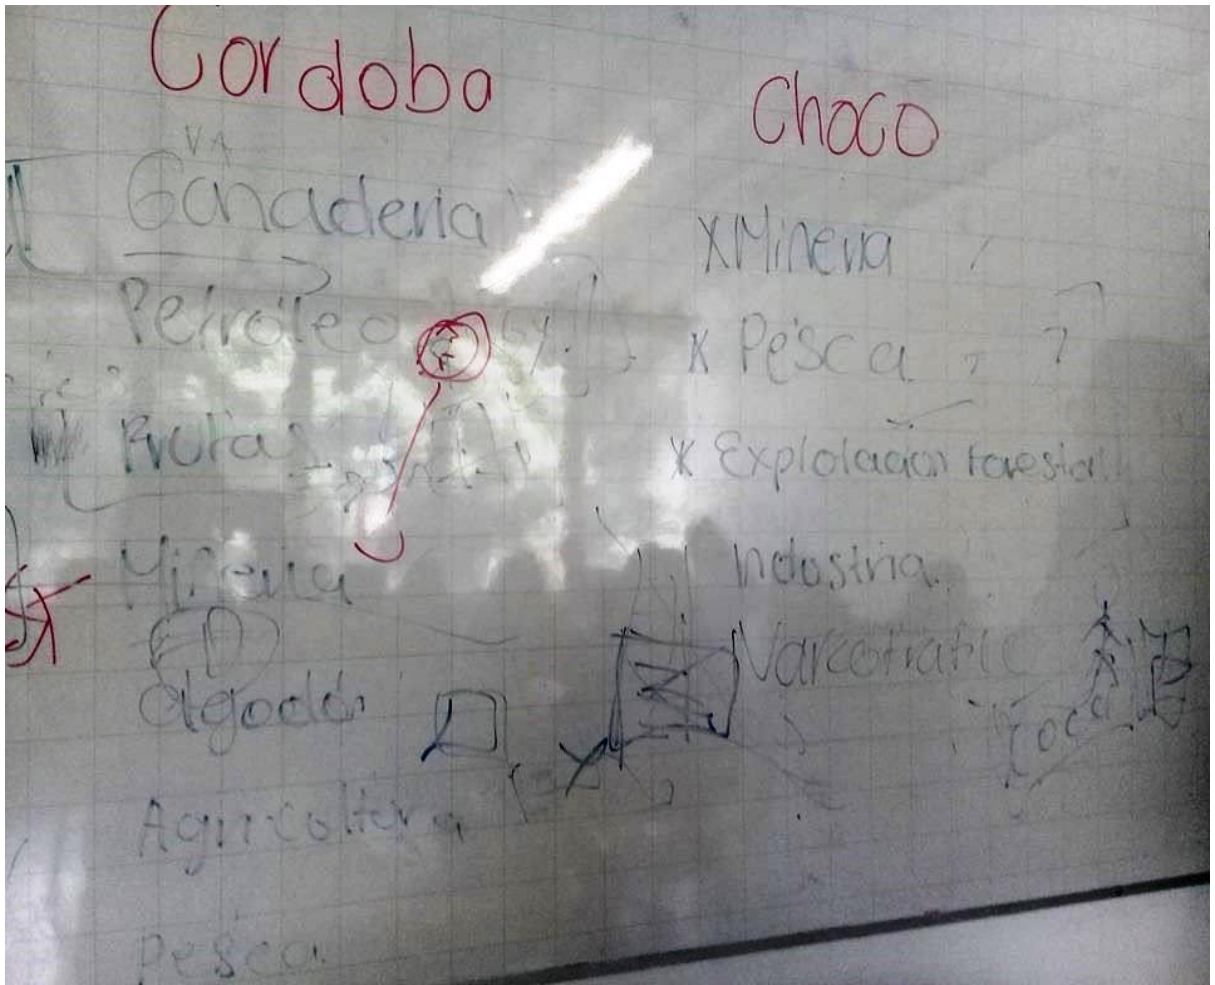 Cordoba
VA
Ganaderia
Petróleo
Frutas
Mineria
Algodón
Agricoltura
Pesca
Choco
X Mineria
X Pesca ?
X Explotacion forestal
Industria.
Narcotrafic
Coca